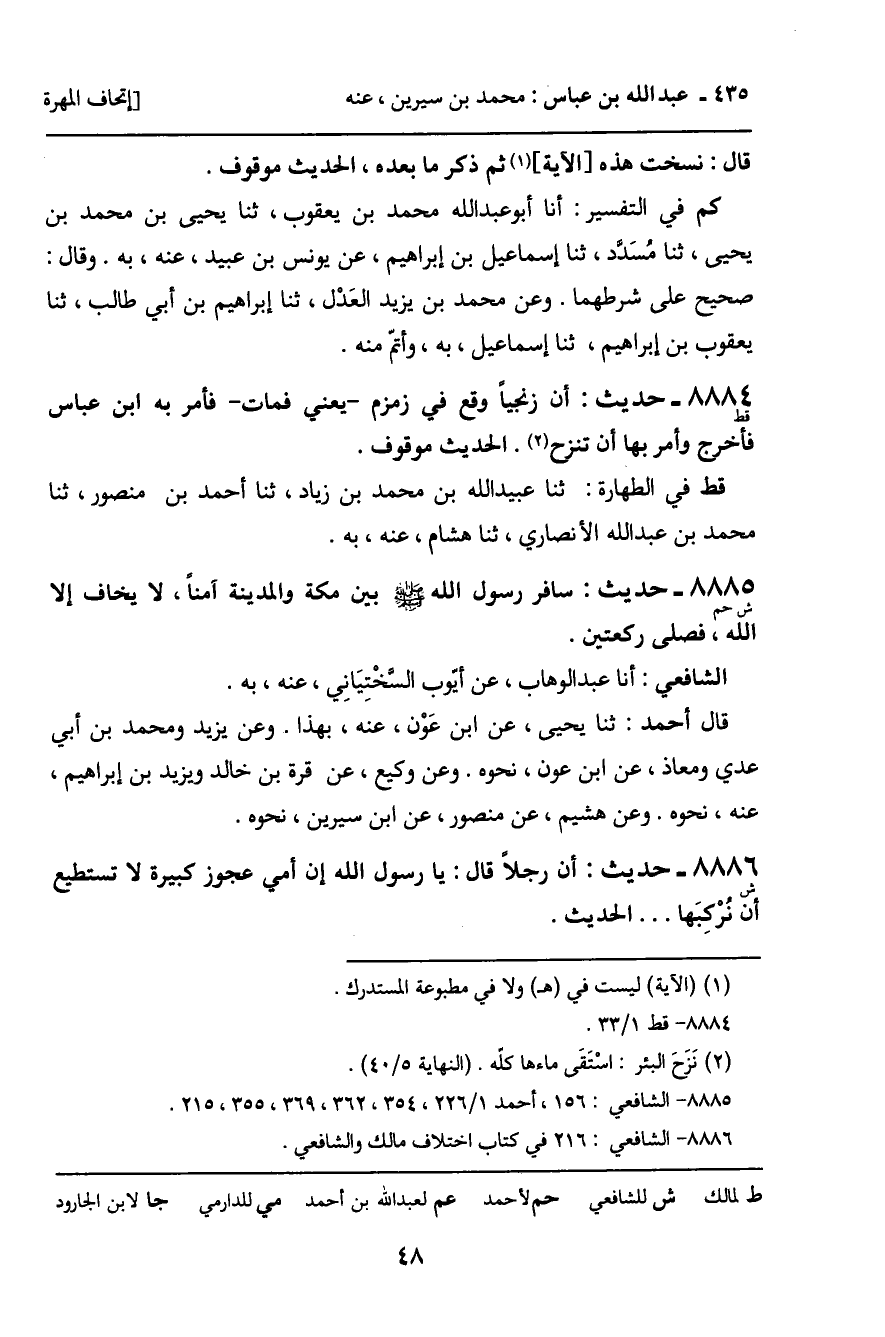 ٤٣٥ ـ عبدالله بن عباس : محمد بن سيرين ، عنه [إتحاف المهرة
قال : نسخت هذه [الآية](١) ثم ذكر ما بعده ، الحديث موقوف .
كم في التفسير : أنا أبوعبدالله محمد بن يعقوب ، ثنا يحيى بن محمد بن
يحيى ، ثنا مُسَدَّد ، ثنا إسماعيل بن إبراهيم ، عن يونس بن عبيد ، عنه ، به . وقال :
صحيح على شرطهما . وعن محمد بن يزيد العَدْل ، ثنا إبراهيم بن أبي طالب ، ثنا
يعقوب بن إبراهيم ، ثنا إسماعيل ، به ، وأتمّ منه .
٨٨٨٤ ـ حديث : أن زنجياً وقع في زمزم –يعني فمات– فأمر به ابن عباس
قط
فأخرج وأمر بها أن تنزح(٢) . الحديث موقوف .
قط في الطهارة : ثنا عبيدالله بن محمد بن زياد ، ثنا أحمد بن منصور ، ثنا
محمد بن عبدالله الأنصاري ، ثنا هشام ، عنه ، به .
٨٨٨٥ ـ حديث : سافر رسول الله ﷺ بين مكة والمدينة آمناً ، لا يخاف إلا
ش حم
الله ، فصلى ركعتين .
الشافعي : أنا عبدالوهاب ، عن أيّوب السَّخْتِيَانِي ، عنه ، به .
قال أحمد : ثنا يحيى ، عن ابن عَوْن ، عنه ، بهذا . وعن يزيد ومحمد بن أبي
عدي ومعاذ ، عن ابن عون ، نحوه . وعن وكيع ، عن قرة بن خالد ويزيد بن إبراهيم ،
عنه ، نحوه . وعن هشيم ، عن منصور ، عن ابن سيرين ، نحوه .
٨٨٨٦ ـ حديث : أن رجلاً قال : يا رسول الله إن أمي عجوز كبيرة لا تستطيع
ش
أن نُرْكِبَها ... الحديث .
(١) (الآية) ليست في (هـ) ولا في مطبوعة المستدرك .
٨٨٨٤– قط ٣٣/١ .
(٢) نَزَحَ البئر : اسْتَقَى ماءها كلّه . (النهاية ٤٠/٥) .
٨٨٨٥– الشافعي : ١٥٦ ، أحمد ٢٢٦/١ ، ٣٥٤ ، ٣٦٢ ، ٣٦٩ ، ٣٥٥ ، ٢١٥ .
٨٨٨٦– الشافعي : ٢١٦ في كتاب اختلاف مالك والشافعي .
ط لمالك ش للشافعي حم لأحمد عم لعبدالله بن أحمد مي للدارمي جا لابن الجارود
٤٨